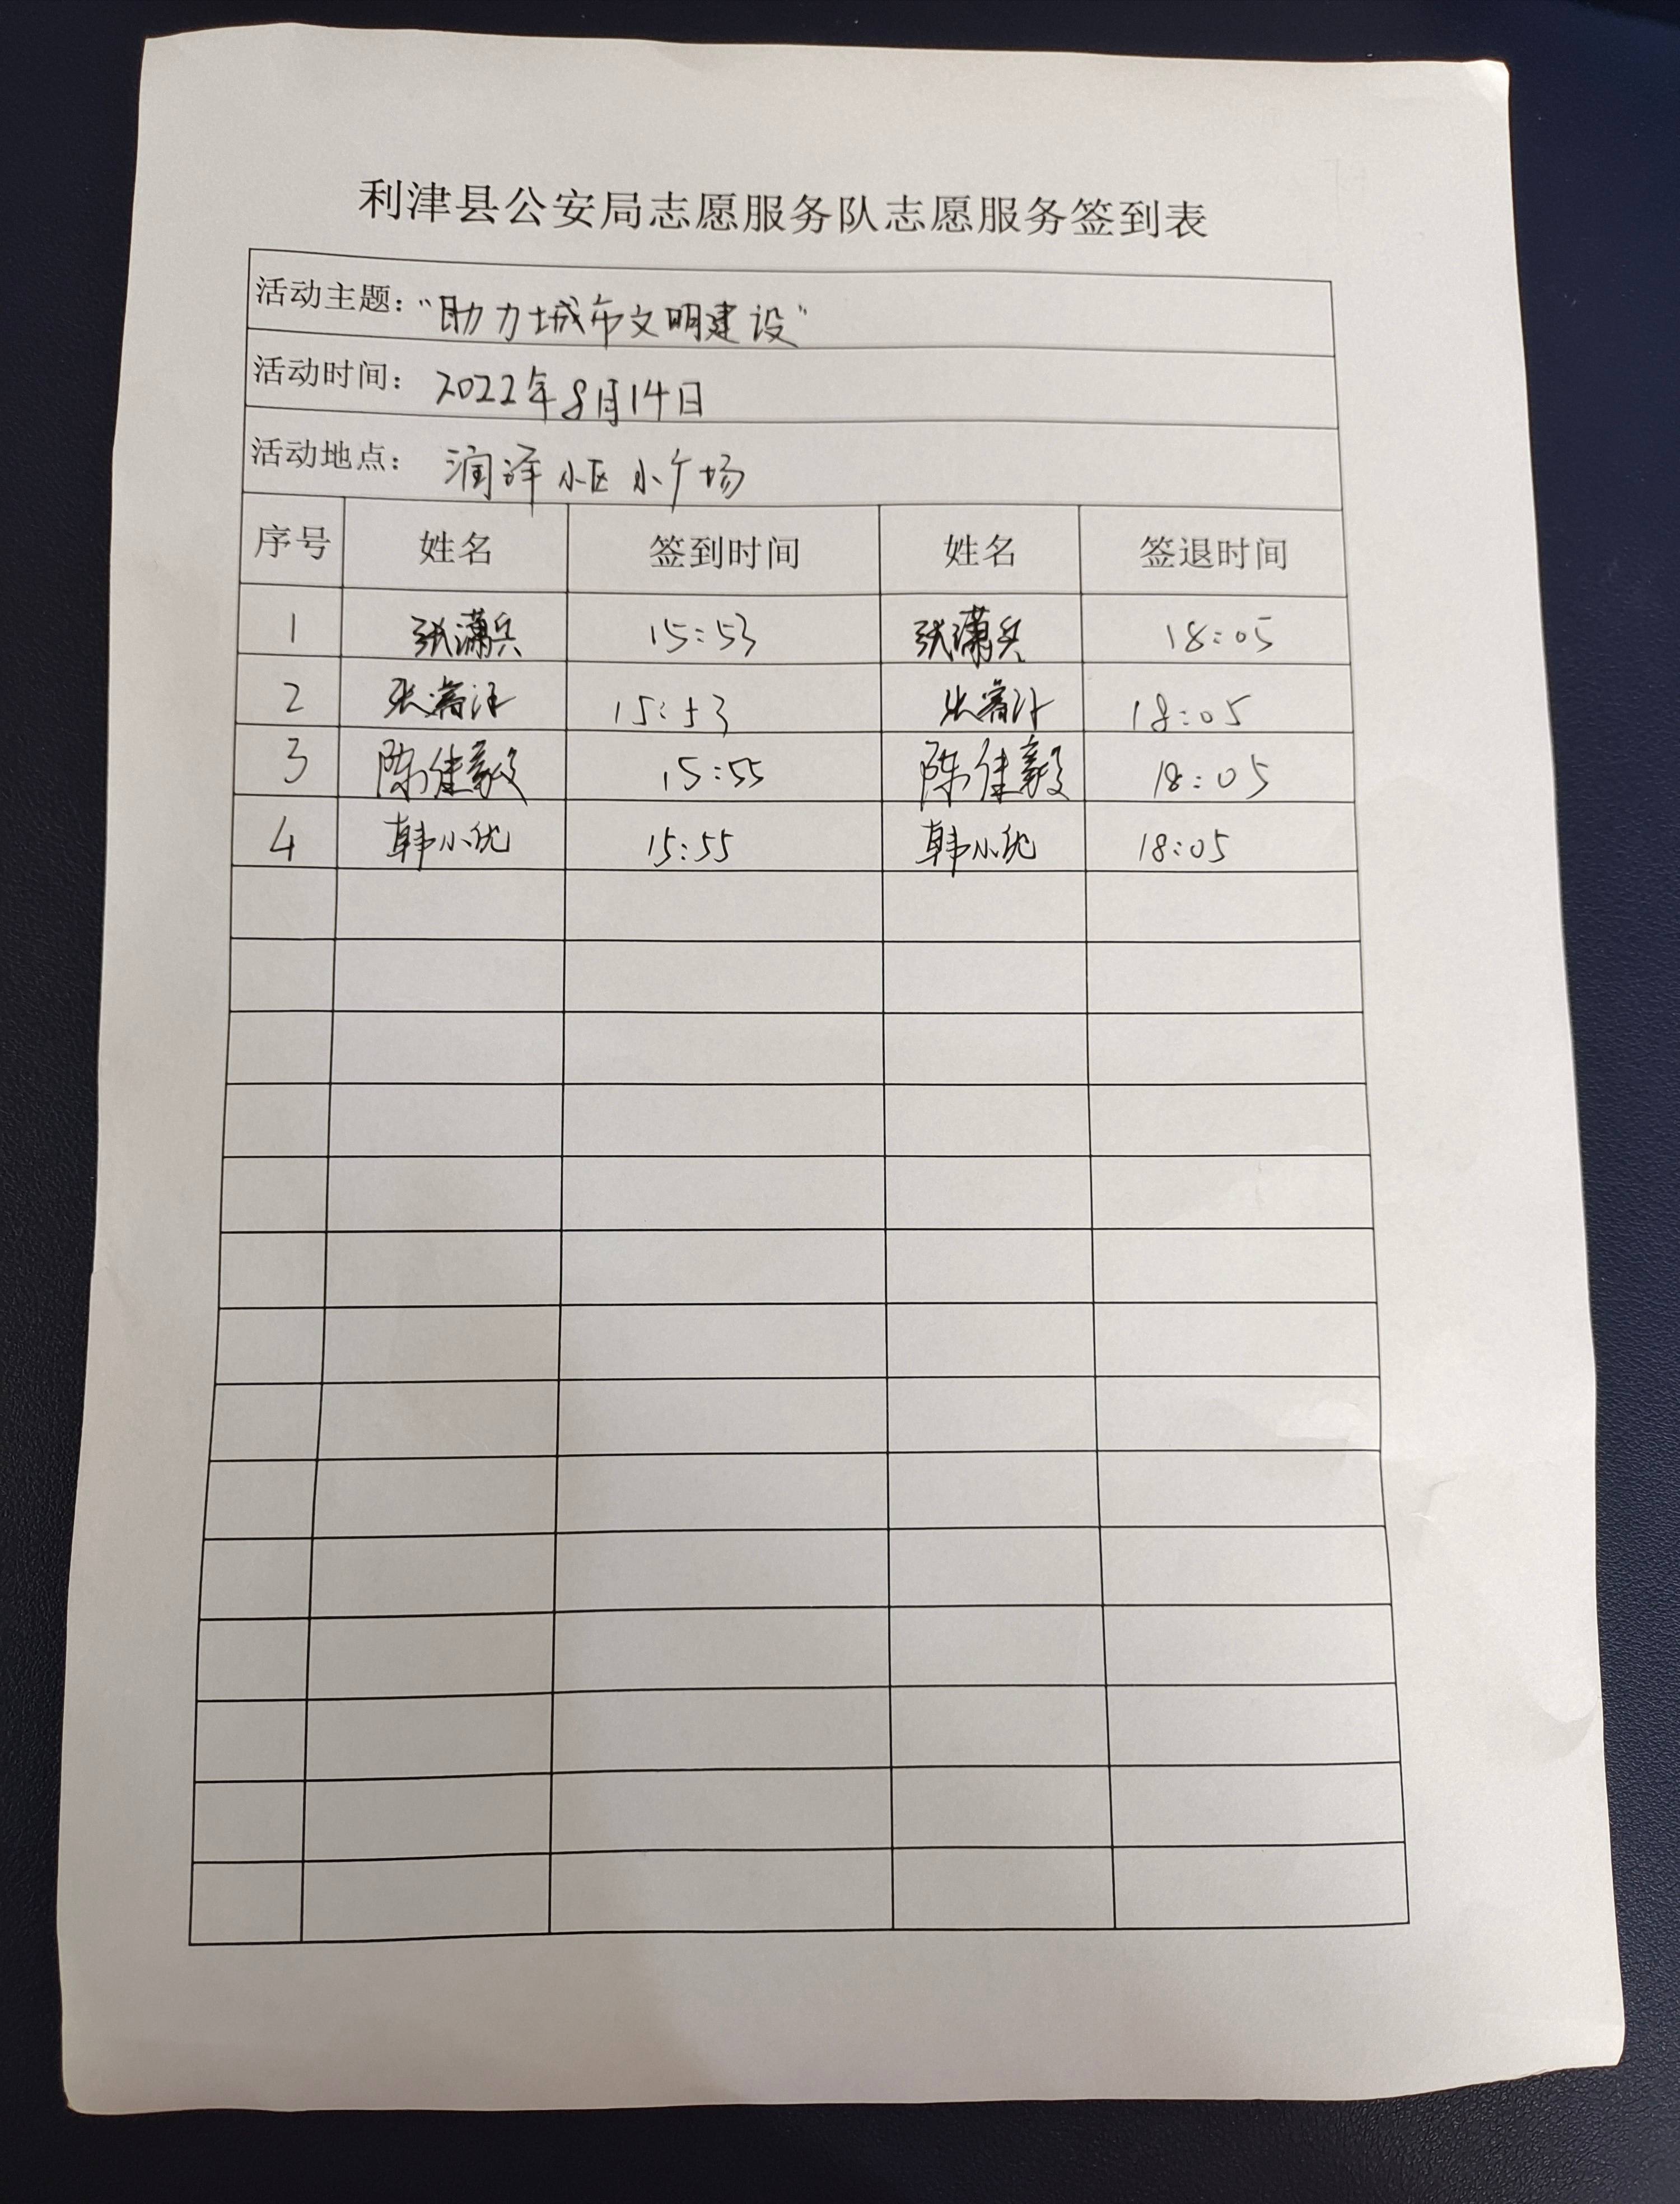 利津县公安局志愿服务队志愿服务签到表
活动主题："助力城市文明建设"
活动时间：2022年8月14日
活动地点：润泽小区小广场
序号 姓名 签到时间 姓名 签退时间
1 张潇兵 15:53 张潇兵 18:05
2 张 15:53 张 18:05
3 陈佳毅 15:55 陈佳毅 18:05
4 韩小优 15:55 韩小优 18:05